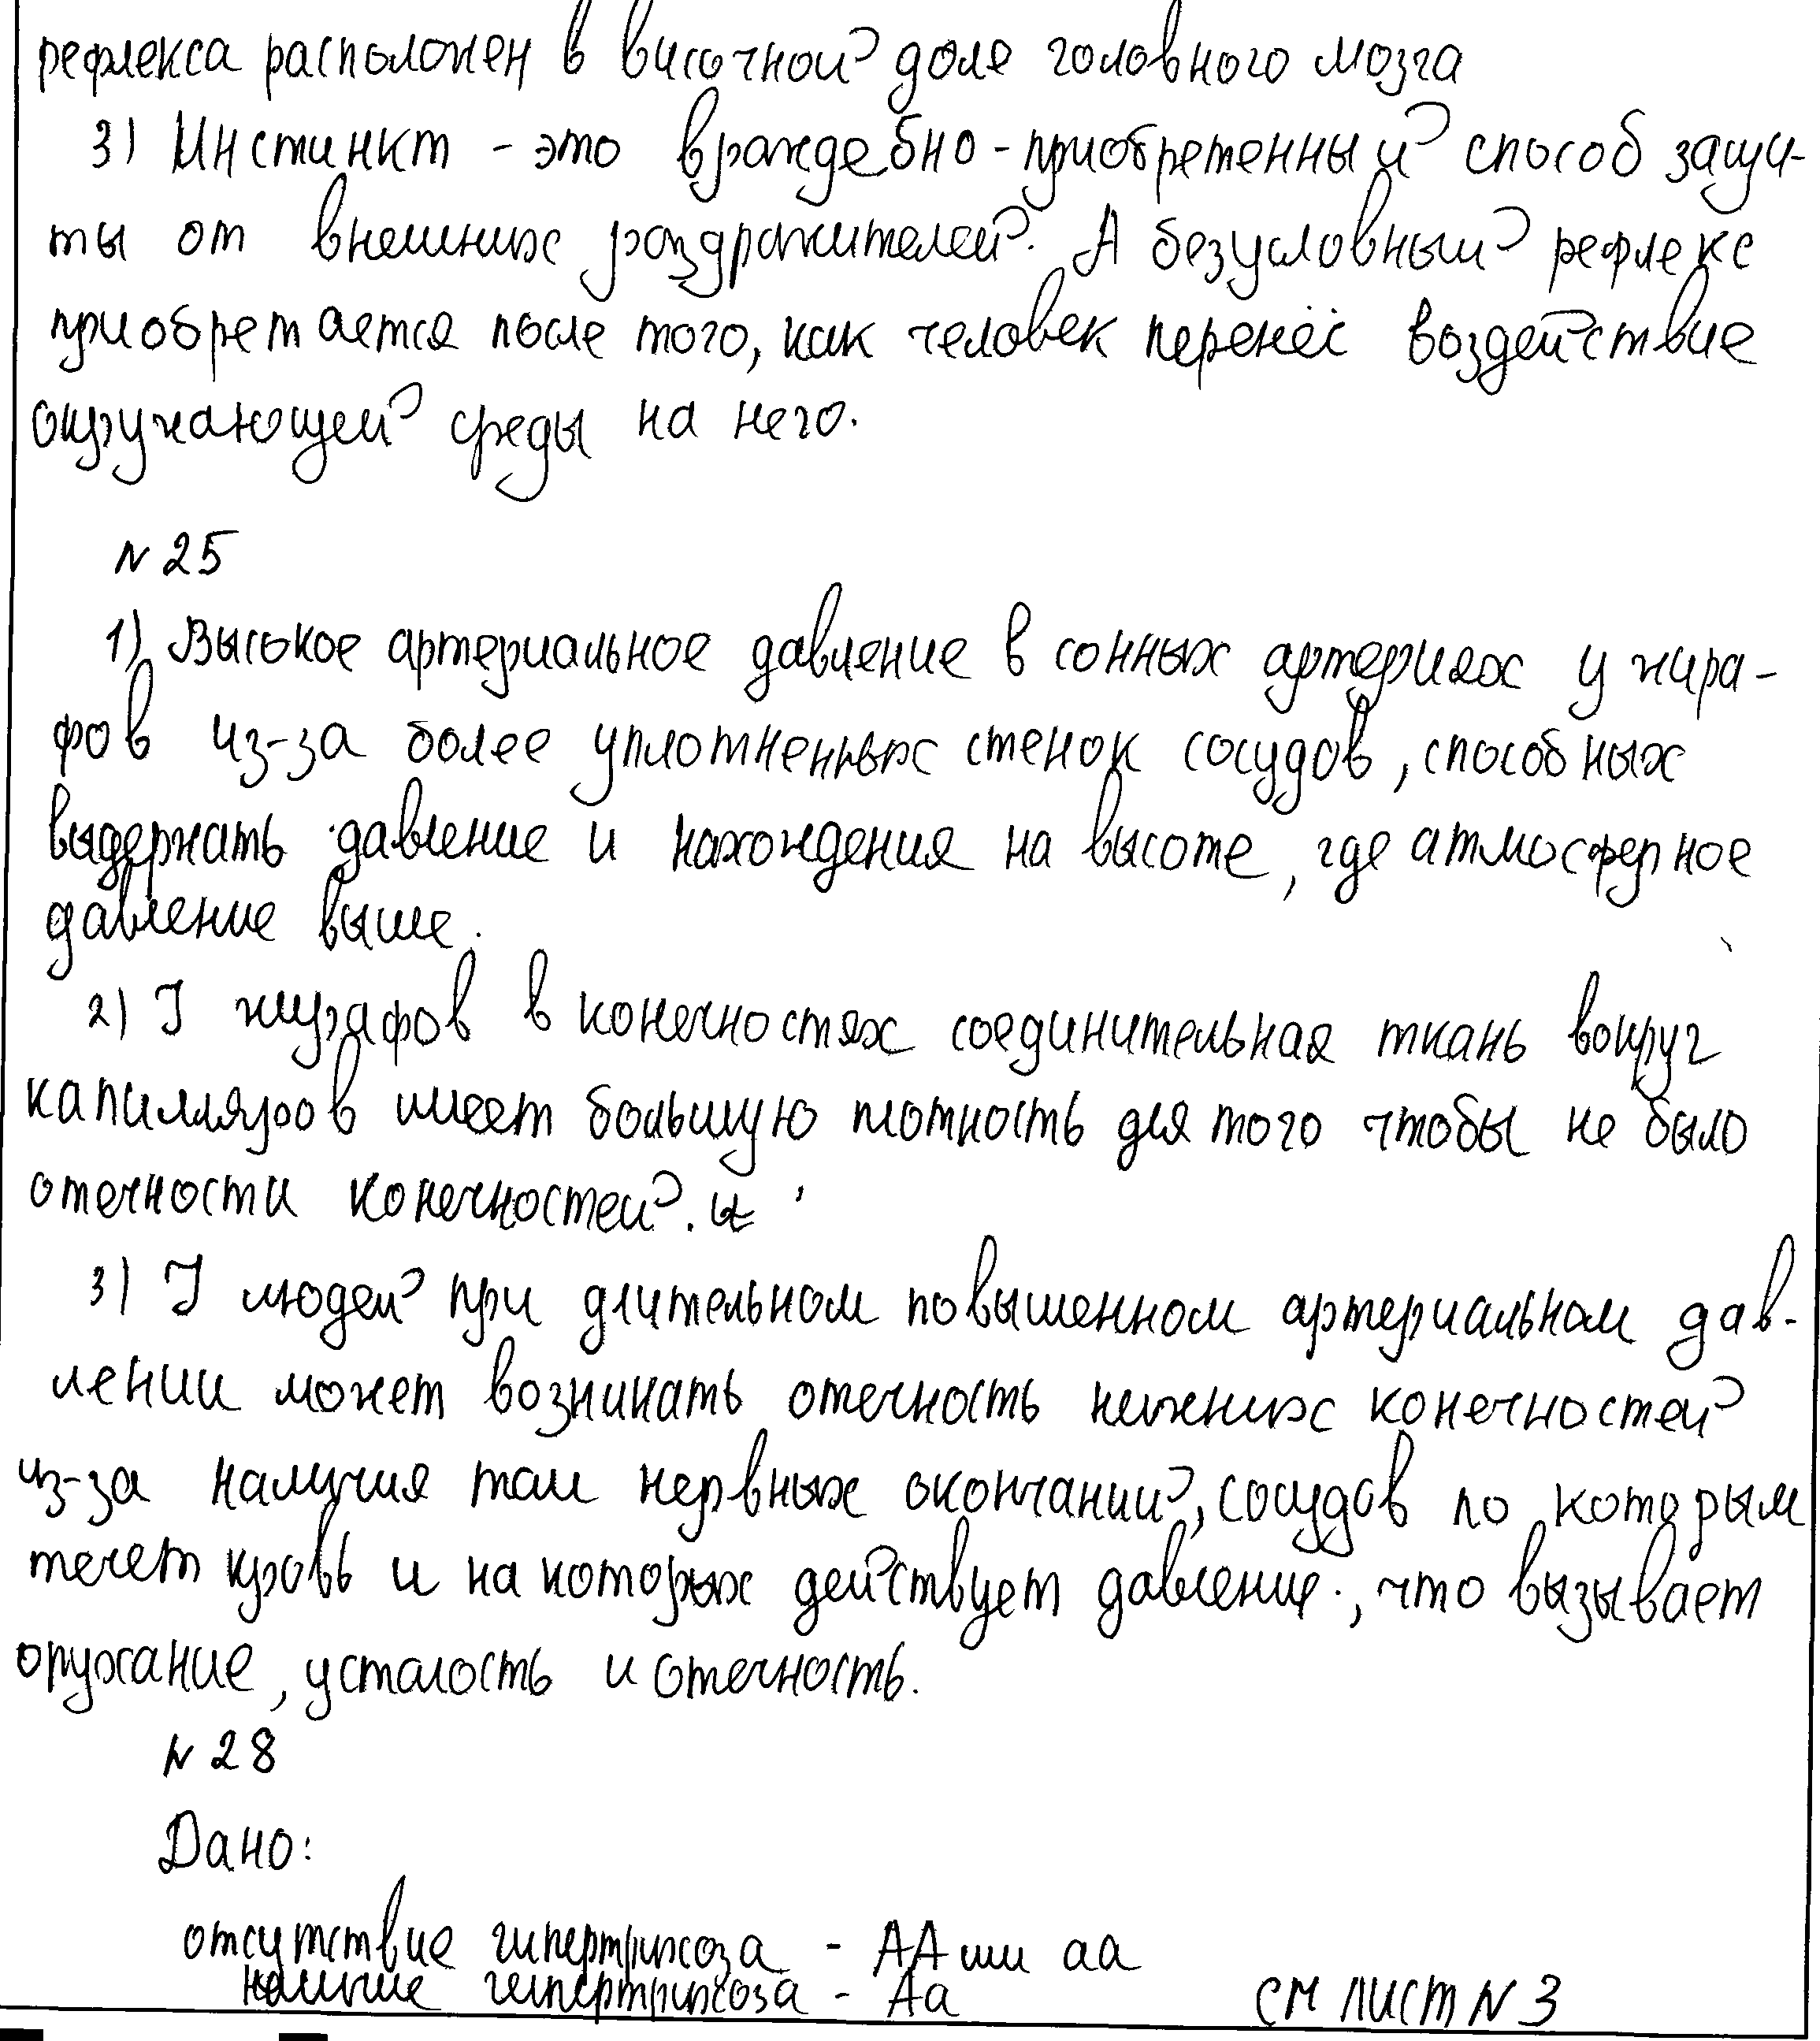 рефлекса расположен в височной доле головного мозга
3) Инстинкт - это враждебно-приобретенный способ защи-
ты от внешних раздражителей. А безусловный рефлекс
приобретается после того, как человек перенёс воздействие
окружающей среды на него.
N 25
1) Высокое артериальное давление в сонных артериях у жира-
фов из-за более уплотненных стенок сосудов, способных
выдержать давление и нахождения на высоте, где атмосферное
давление выше.
2) У жирафов в конечностях соединительная ткань вокруг
капилляров имеет большую плотность для того чтобы не было
отечности конечностей.
3) У людей при длительном повышенном артериальном дав-
лении может возникать отечность нижних конечностей
из-за наличия там нервных окончаний, сосудов по которым
течет кровь и на которых действует давление, что вызывает
опухание, усталость и отечность.
N 28
Дано:
отсутствие гипертрихоза - АА или аа
наличие гипертрихоза - Аа
см лист N 3